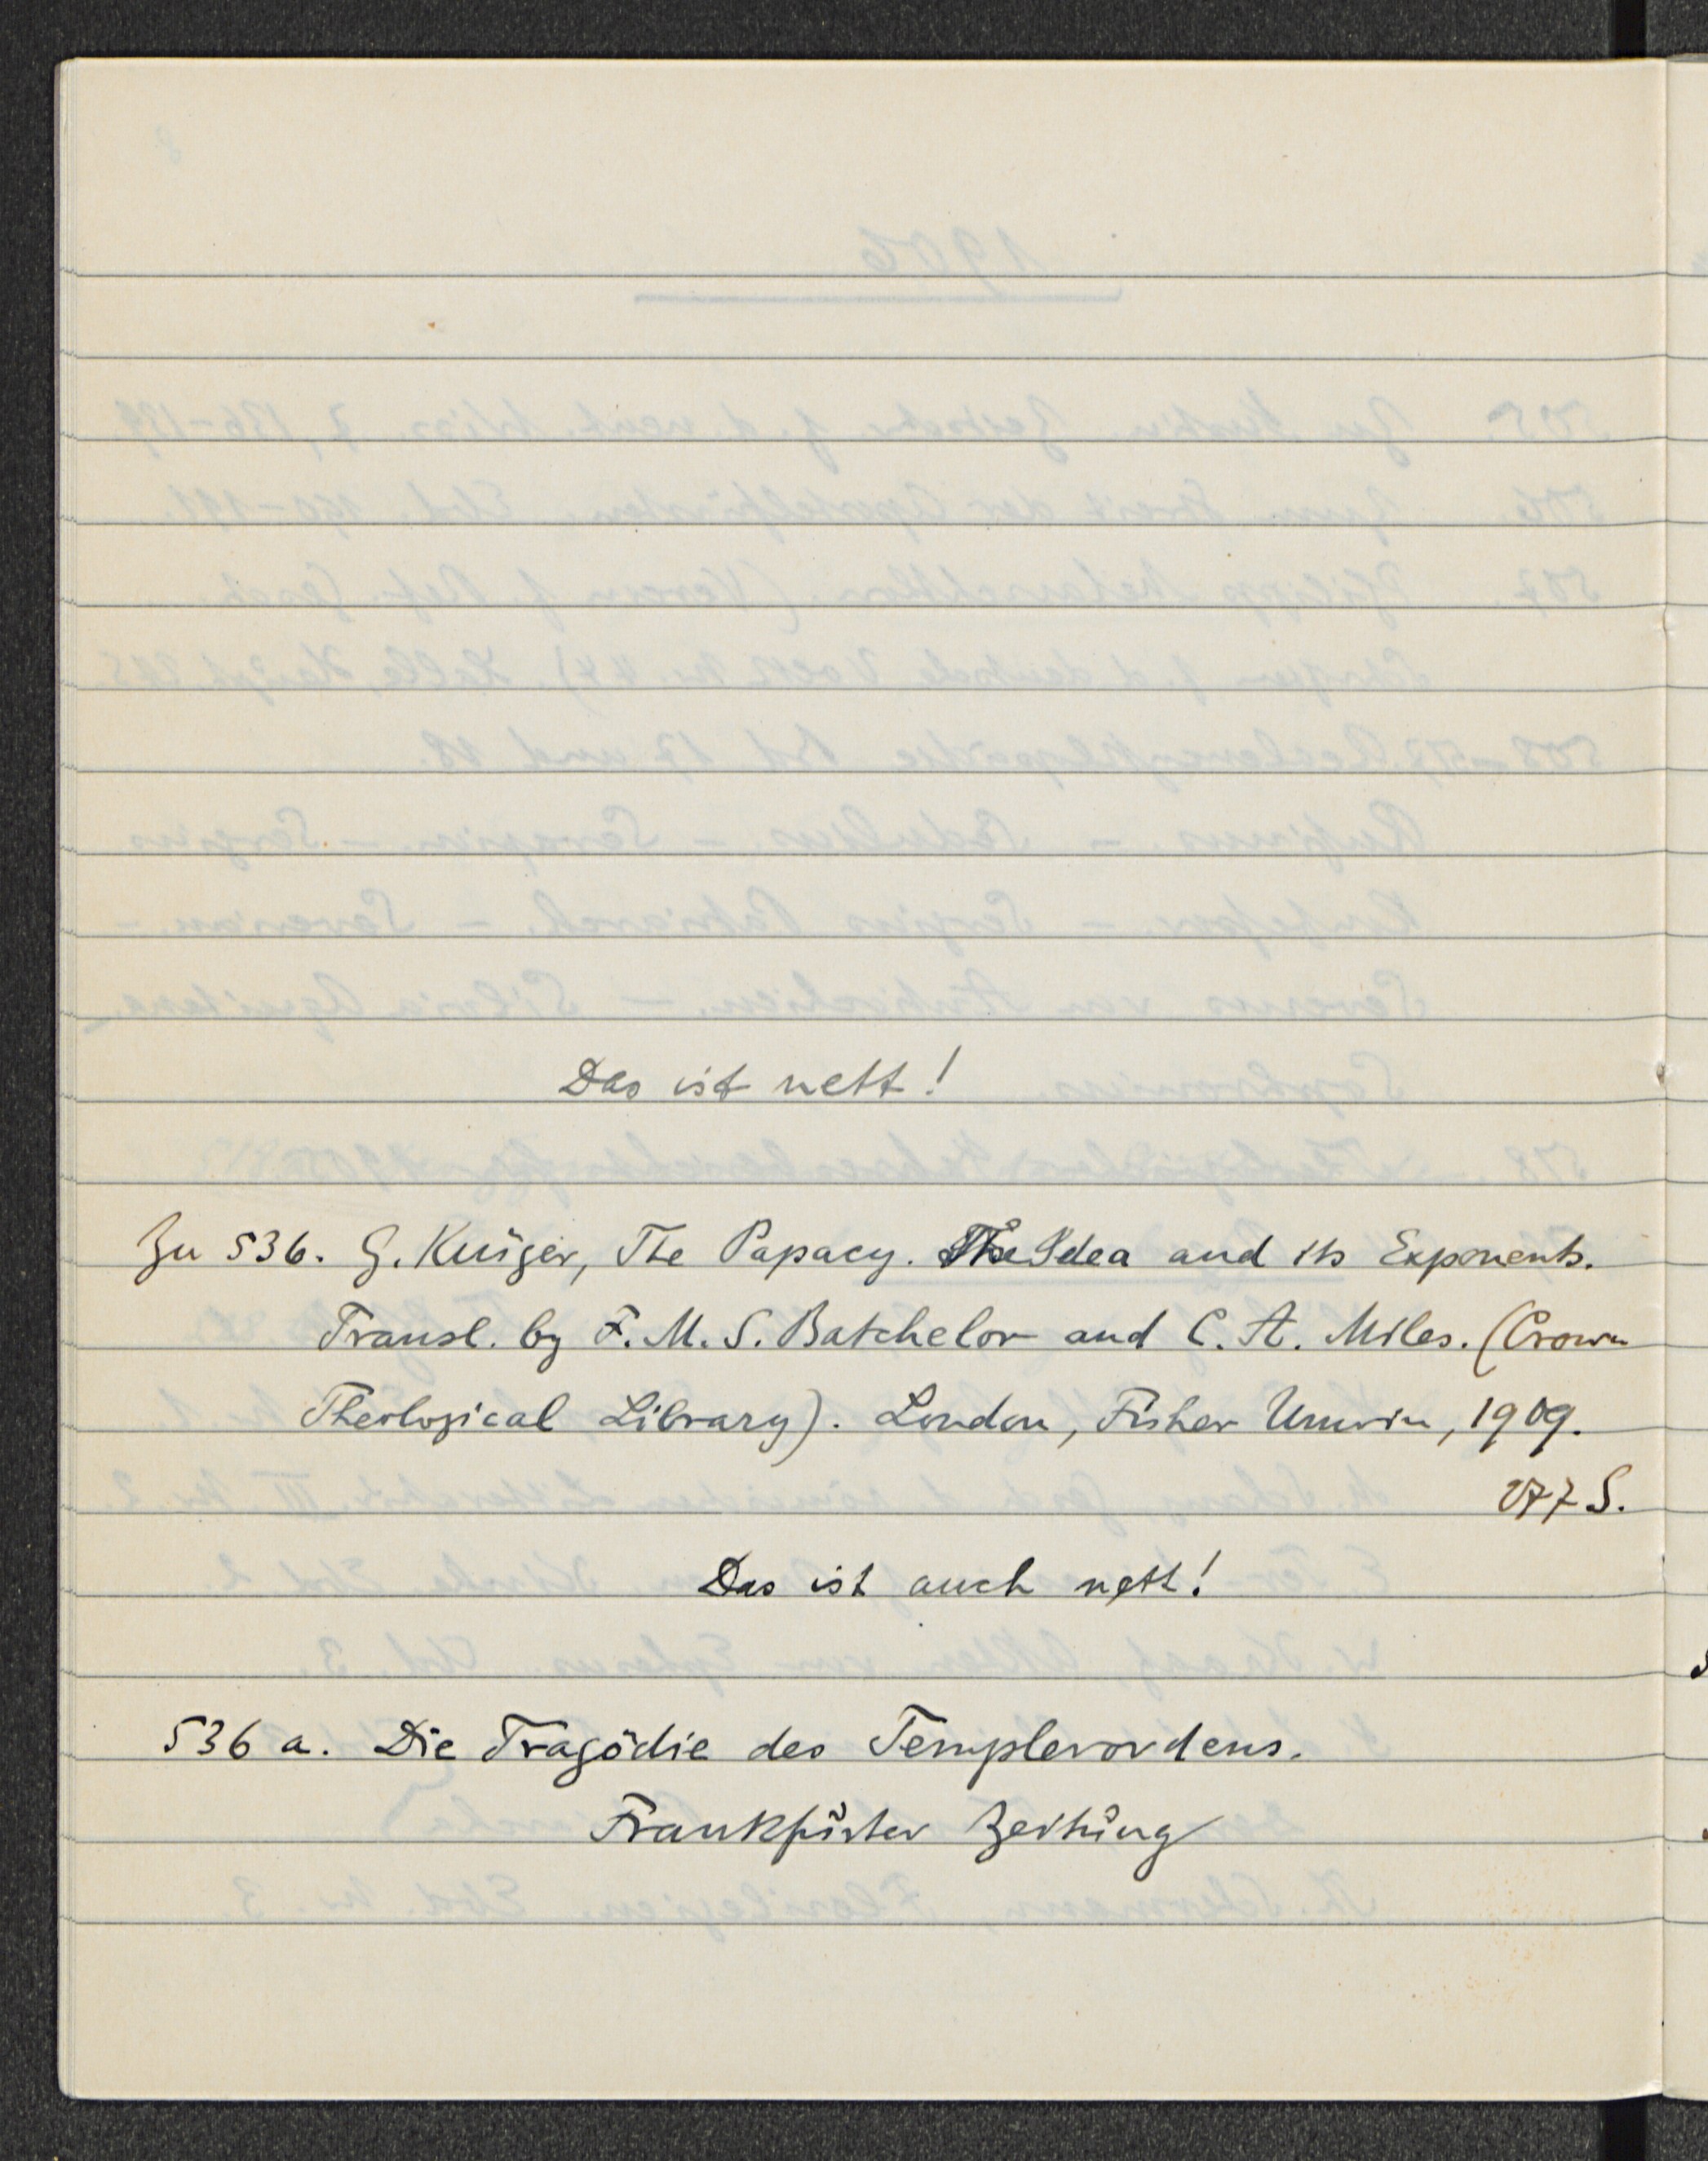 Das ist nett!
Zu 536. G. Krüger, The Papacy. The Idea and its Exponents.
Transl. by F. M. S. Batchelor and C. A. Miles. (Crown
Theological Library). London, Fisher Unwin, 1909.
277 S.
Das ist auch nett!
536 a. Die Tragödie des Templerordens.
Frankfurter Zeitung